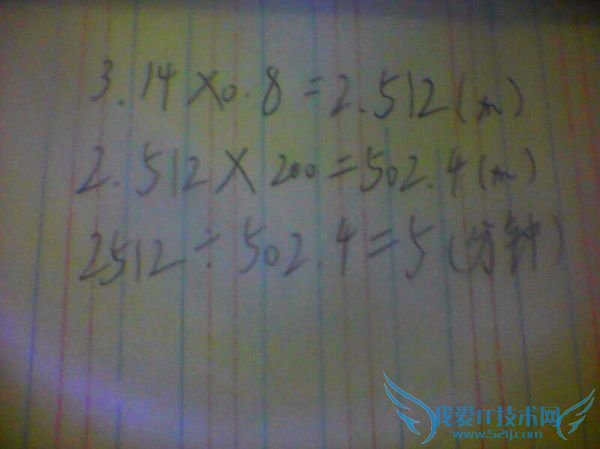 3.14×0.8=2.512(m)
2.512×200=502.4(m)
2512÷502.4=5(分钟)
我爱IT技术网
www.52ij.com